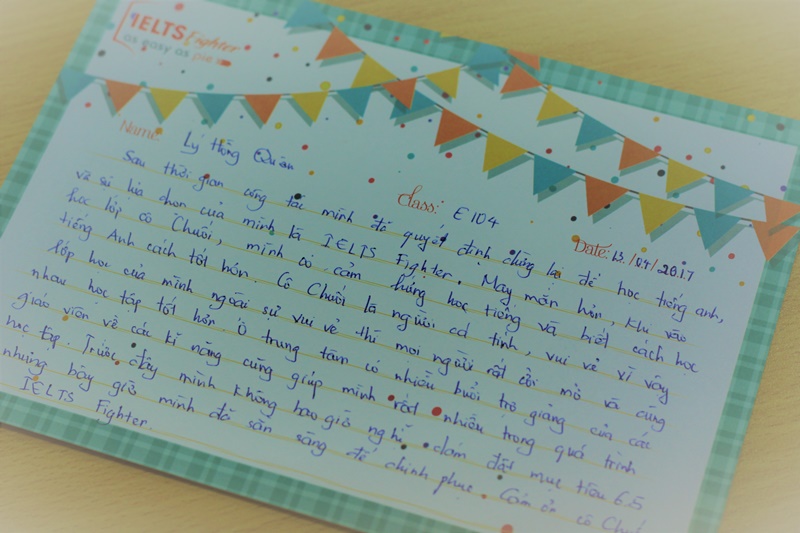 IELTS Fighter
as easy as pie
Name: Lý Hồng Quân
Class: E104
Date: 13/04/2017
Sau thời gian công tác mình đã quyết định dừng lại để học tiếng anh,
và sự lựa chọn của mình là IELTS Fighter. May mắn hơn, khi vào
học lớp cô Chuối, mình có cảm hứng học tiếng và biết cách học
tiếng Anh cách tốt hơn. Cô Chuối là người cá tính, vui vẻ vì vậy
lớp học của mình ngoài sự vui vẻ thì mọi người rất cởi mở và cùng
nhau học tập tốt hơn. Ở trung tâm có nhiều buổi trợ giảng của các
giáo viên về các kĩ năng cũng giúp mình rất nhiều trong quá trình
học tập. Trước đây mình không bao giờ nghĩ dám đặt mục tiêu 6.5
nhưng bây giờ mình đã sẵn sàng để chinh phục. Cảm ơn cô Chuối
IELTS Fighter.